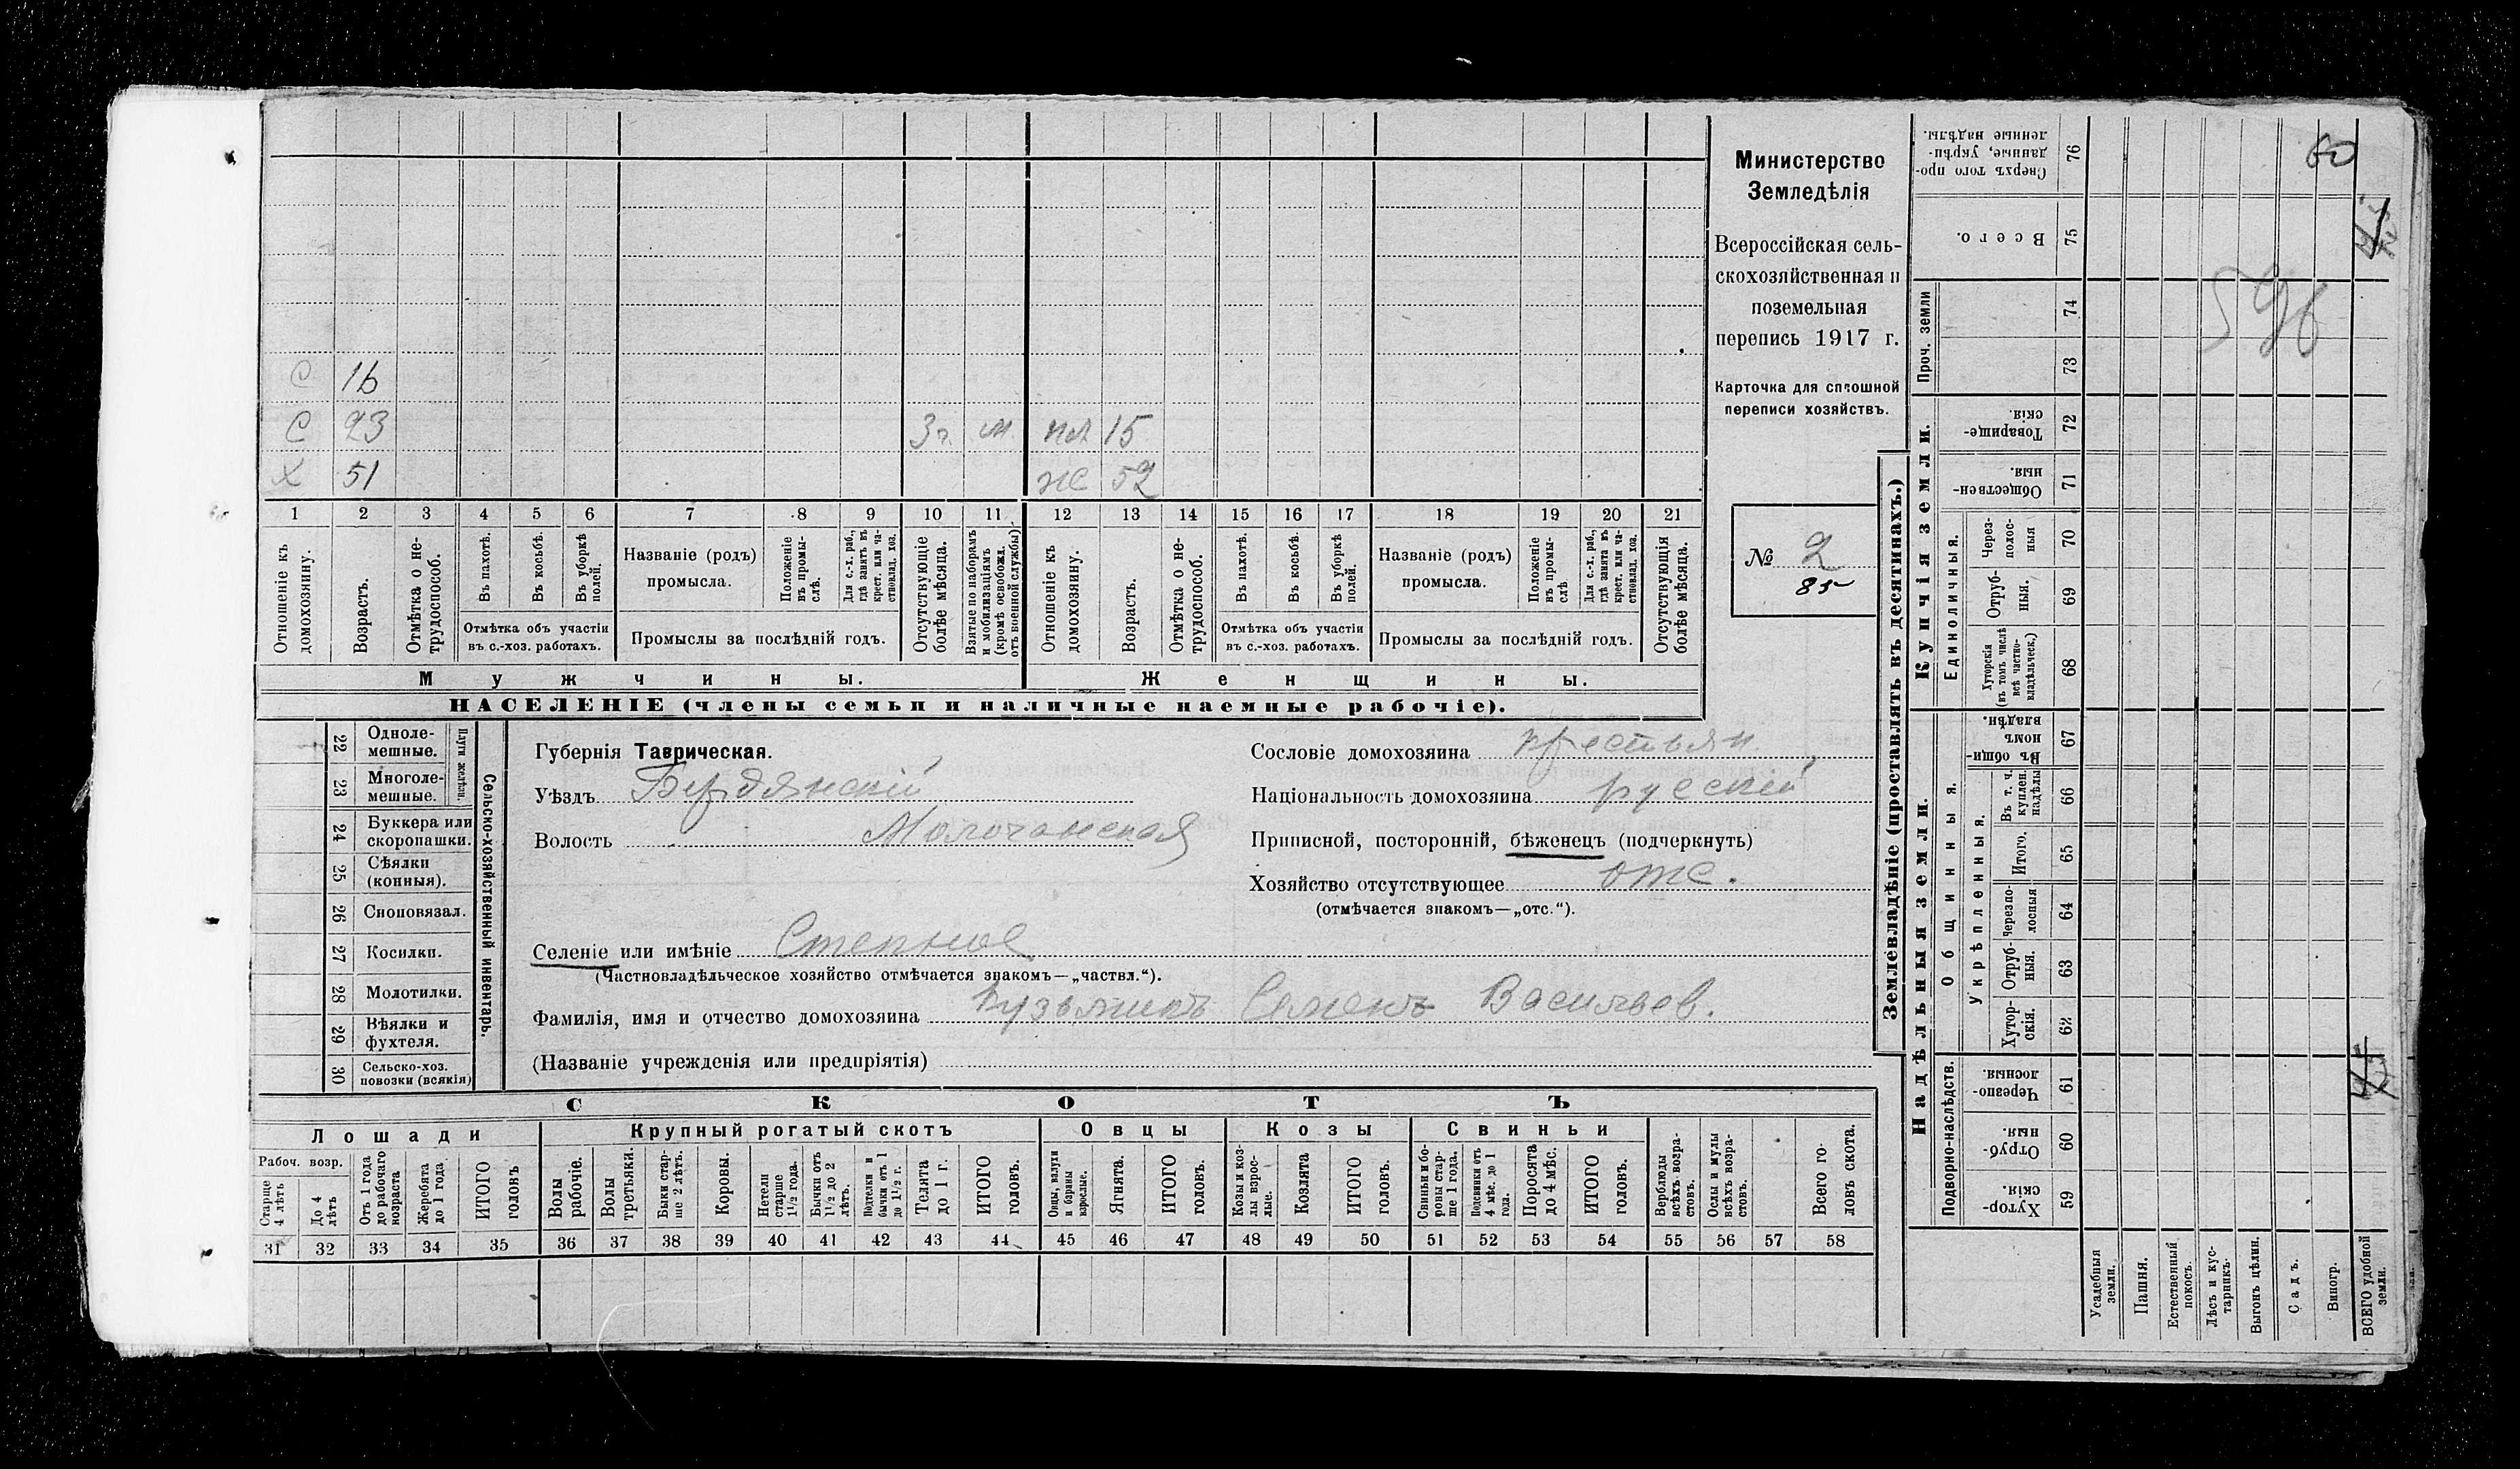 С 16
С 23 3 г. м пл 15
Х 51 же 52
1 2 3 4 5 6 7 8 9 10 11 12 13 14 15 16 17 18 19 20 21
Отношеніе къ домохозяину.
Возрастъ.
Отмѣтка о не-трудоспособ.
Въ пахотѣ.
Въ косьбѣ.
Въ уборкѣ полей.
Отмѣтка объ участіи
въ с.-хоз. работахъ.
Названіе (родъ)
промысла.
Положеніе въ промы-слѣ.
Для с.-х. раб., гдѣ занятъ въ крест. или ча-стновлад. хоз.
Промыслы за послѣдній годъ.
Отсутствующіе болѣе мѣсяца.
Взятые по наборамъ и мобилизаціямъ (кромѣ освобожд. отъ военной службы)
Отношеніе къ домохозяину.
Возрастъ.
Отмѣтка о не-трудоспособ.
Въ пахотѣ.
Въ косьбѣ.
Въ уборкѣ полей.
Отмѣтка объ участіи
въ с.-хоз. работахъ.
Названіе (родъ)
промысла.
Положеніе въ промы-слѣ
Для с.-х. раб., гдѣ занята въ крест. или ча-стновлад. хоз.
Промыслы за послѣдній годъ.
Отсутствующія болѣе мѣсяца.
Мужчины.
Женщины.
НАСЕЛЕНІЕ (члены семьи и наличные наемные рабочіе).
Министерство
Земледѣлія
Всероссійская сель-
скохозяйственная и
поземельная
перепись 1917 г.
Карточка для сплошной
переписи хозяйствъ.
№ 2
85
22 Однолемешные.
23 Многолемешные.
Плуги желѣзн.
24 Буккера или скоропашки.
25 Сѣялки (конныя).
26 Сноповязал.
27 Косилки.
28 Молотилки.
29 Вѣялки и фухтеля.
30 Сельско-хоз. повозки (всякія)
Сельско-хозяйственный инвентарь.
Губернія Таврическая.
Уѣздъ Бердянскій
Волость Молочанская
Селеніе или имѣніе Степное
(Частновладѣльческое хозяйство отмѣчается знакомъ—„частвл.“).
Фамилія, имя и отчество домохозяина Кузьминъ Семенъ Васильев.
(Названіе учрежденія или предпріятія)
Сословіе домохозяина крестьян.
Національность домохозяина русскій
Приписной, посторонній, бѣженецъ (подчеркнуть)
Хозяйство отсутствующее отс.
(отмѣчается знакомъ—„отс.“).
СКОТЪ
Лошади
Рабоч. возр.
Старше 4 лѣтъ
До 4 лѣтъ
Отъ 1 года до рабочаго возраста
Жеребята до 1 года
ИТОГО головъ
Крупный рогатый скотъ
Волы рабочіе.
Волы третьяки.
Быки стар-ше 2 лѣтъ.
Коровы.
Нетели старше 1½ года.
Бычки отъ 1½ до 2 лѣтъ.
Подтелки и бычки отъ 1 до 1½ г.
Телята до 1 г.
ИТОГО головъ.
Овцы
Овцы, валухи и бараны взрослые.
Ягнята.
ИТОГО головъ.
Козы
Козы и коз-лы взрос-лые.
Козлята
ИТОГО головъ.
Свиньи
Свиньи и бо-ровы стар-ше 1 года.
Подсвинки отъ 4 мѣс. до 1 года.
Поросята до 4 мѣс.
ИТОГО головъ.
Верблюды всѣхъ возра-стовъ.
Ослы и мулы всѣхъ возра-стовъ.
Всего го-ловъ скота.
31 32 33 34 35 36 37 38 39 40 41 42 43 44 45 46 47 48 49 50 51 52 53 54 55 56 57 58
Землевладѣніе (проставлять въ десятинахъ.)
Купчія земли.
Надѣльныя земли.
Сверхъ того про-данные, укрѣп-ленные надѣлы. 76
Всего. 75
Проч. земли
74
73
Товарище-скія. 72
Обществен-ныя. 71
Единоличныя.
Через-полос-ныя 70
Отруб-ныя. 69
Хуторскія (въ томъ числѣ всѣ частно-владѣльческ.) 68
Общинныя.
Въ общи-номъ владѣн. 67
Укрѣпленныя.
Въ т. ч. куплен. надѣлы 66
Итого. 65
Черезпо-лосныя 64
Отруб-ныя. 63
Хутор-скія. 62
Подворно-наслѣдств.
Черезпо-лосныя. 61
Отруб-ныя. 60
Хутор-скія. 59
Усадебныя земли.
Пашня.
Естественный покосъ.
Лѣсъ и кус-тарникъ.
Выгонъ цѣлин.
Садъ.
Виногр.
ВСЕГО удобной земли.
60
596